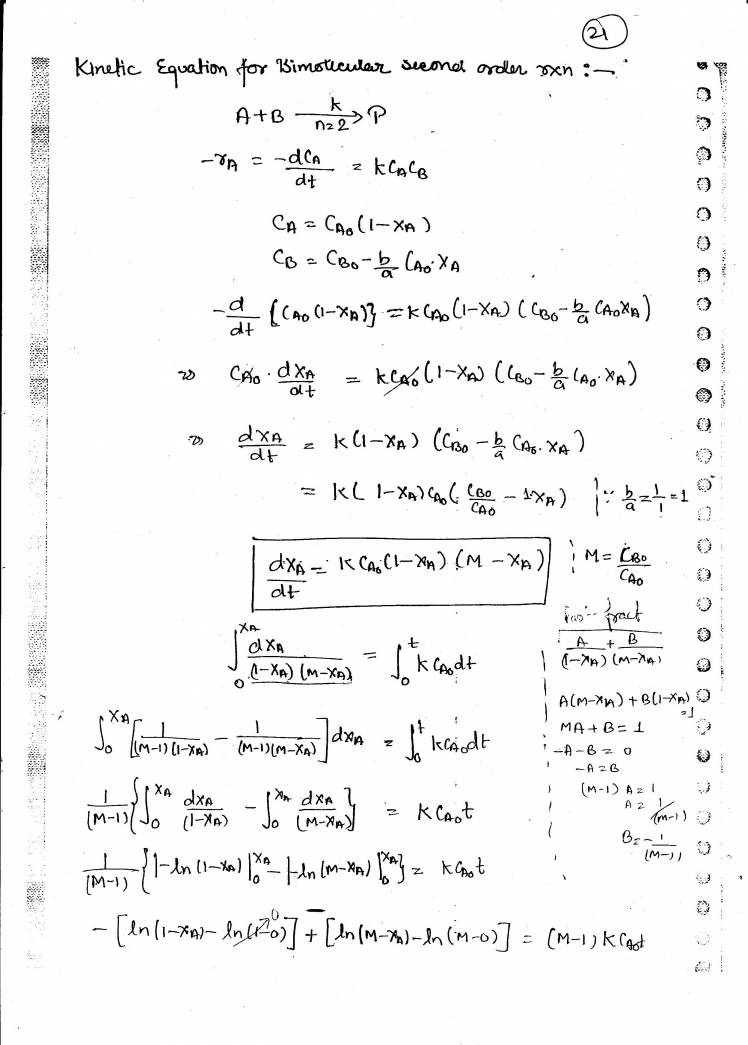 21
Kinetic Equation for Bimolecular second order rxn :-
A+B —k/n=2→ P
-rA = -dCA/dt = kCACB
CA = CA0(1-XA)
CB = CB0 - b/a CA0·XA
-d/dt {CA0(1-XA)} = kCA0(1-XA)(CB0 - b/a CA0XA)
⇒ CA0 · dXA/dt = kCA0(1-XA)(CB0 - b/a CA0·XA)
⇒ dXA/dt = k(1-XA)(CB0 - b/a CA0·XA)
= k(1-XA)CA0(CB0/CA0 - 1·XA) | ∵ b/a = 1/1 = 1
dXA/dt = kCA0(1-XA)(M-XA) | M = CB0/CA0
fract
A/(1-XA) + B/(M-XA)
∫0^XA dXA/(1-XA)(M-XA) = ∫0^t kCA0dt
A(M-XA) + B(1-XA) = 1
MA+B = 1
-A-B = 0
-A = B
(M-1) A = 1
A = 1/(M-1)
B = -1/(M-1)
∫0^XA [1/(M-1)(1-XA) - 1/(M-1)(M-XA)] dXA = ∫0^t kCA0dt
1/(M-1) {∫0^XA dXA/(1-XA) - ∫0^XA dXA/(M-XA)} = kCA0t
1/(M-1) {|-ln(1-XA)|0^XA - |-ln(M-XA)|0^XA} = kCA0t
-[ln(1-XA) - ln(1-0)] + [ln(M-XA) - ln(M-0)] = (M-1)kCA0t